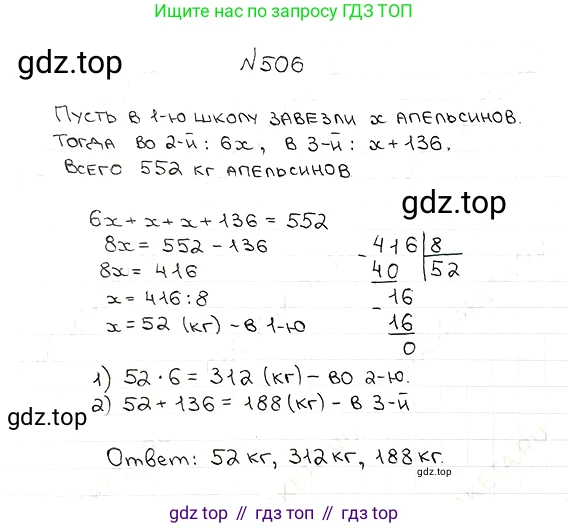 Ищите нас по запросу ГДЗ ТОП
gdz.top
№506
Пусть в 1-ю школу завезли x апельсинов.
Тогда во 2-й: 6x, в 3-й: x+136.
Всего 552 кг апельсинов
gdz.top
6x + x + x + 136 = 552
8x = 552 - 136
8x = 416
x = 416 : 8
x = 52 (кг) - в 1-ю
- 416 | 8
40 | 52
- 16
16
0
1) 52 · 6 = 312 (кг) - во 2-ю.
2) 52 + 136 = 188 (кг) - в 3-й
gdz.top
Ответ: 52 кг, 312 кг, 188 кг.
gdz.top
gdz.top // гдз топ // гдз.топ